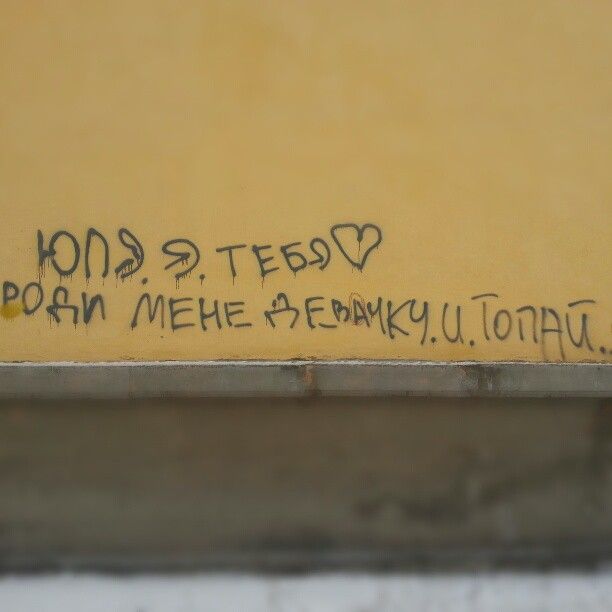 ЮЛЯ. Я. ТЕБЯ♡
РОДИ МЕНЕ ДЕВАЧКУ. И. ТОПАЙ..